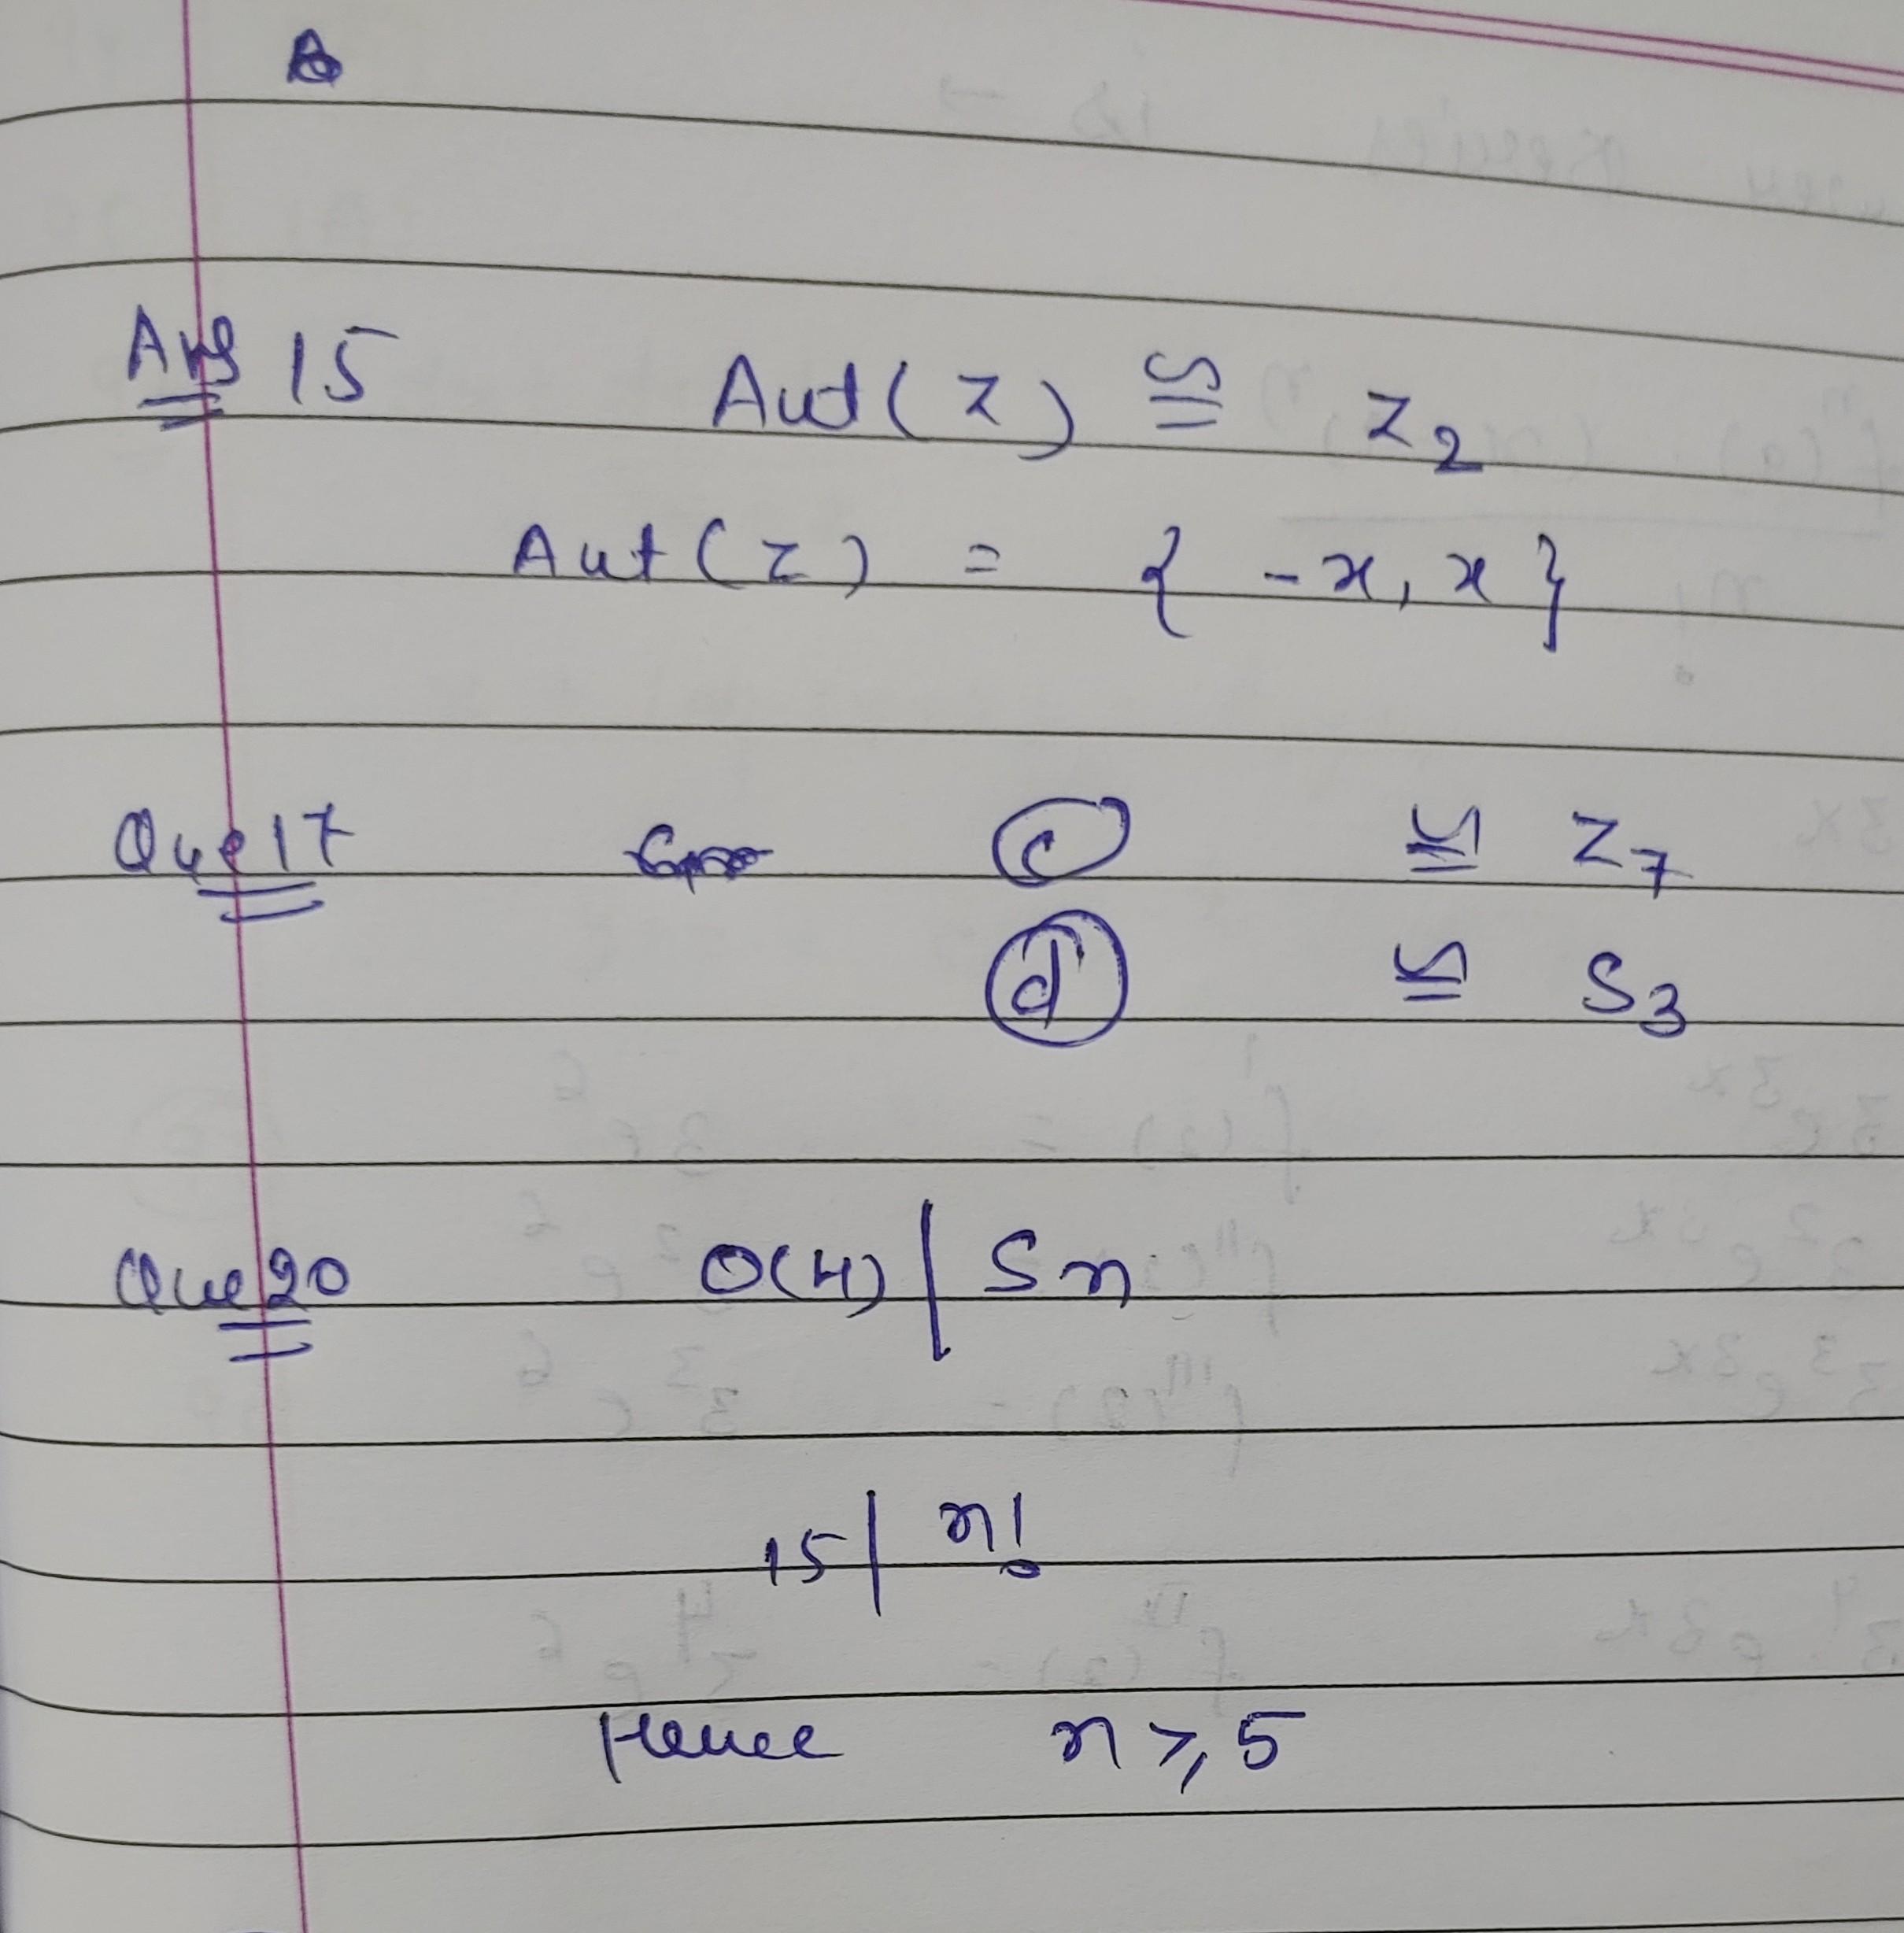 Ans 15 Aut(Z) ≅ Z₂
Aut(Z) = { -x, x }
Que 17 (c) ≅ Z₇
(d) ≅ S₃
Que 20 O(H) | Sn
15 | n!
Hence n ≥ 5